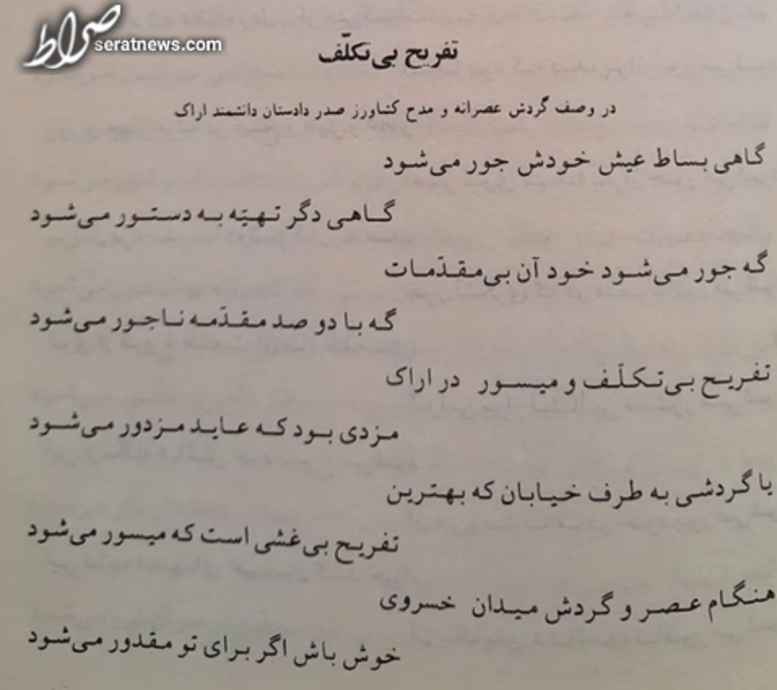 صراط
seratnews.com
تفریح بی‌تکلّف
در وصف گردش عصرانه و مدح کشاورز صدر دادستان دانشمند اراک
گاهی بساط عیش خودش جور می‌شود
گاهی دگر تهیّه به دستور می‌شود
گه جور می‌شود خود آن بی‌مقدّمات
گه با دو صد مقدّمه ناجور می‌شود
تفریح بی‌تکلّف و میسور در اراک
مزدی بود که عاید مزدور می‌شود
یا گردشی به طرف خیابان که بهترین
تفریح بی‌غشی است که میسور می‌شود
هنگام عصر و گردش میدان خسروی
خوش باش اگر برای تو مقدور می‌شود